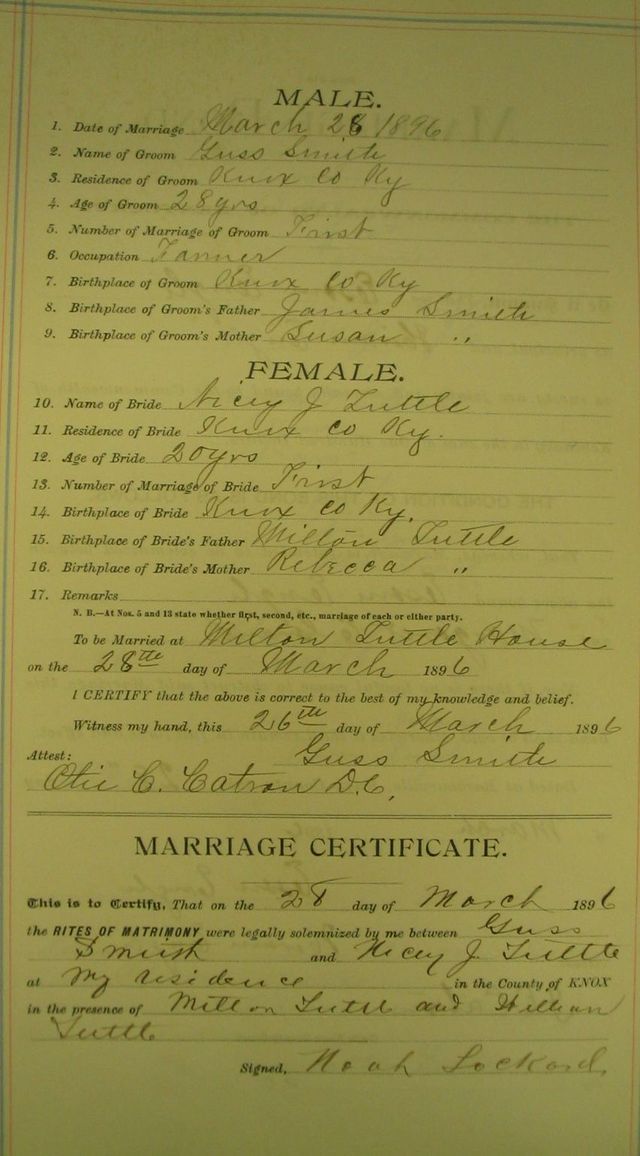 MALE.
1. Date of Marriage March 28 1896
2. Name of Groom Guss Smith
3. Residence of Groom Knox Co Ky
4. Age of Groom 28 yrs
5. Number of Marriage of Groom First
6. Occupation Farmer
7. Birthplace of Groom Knox Co Ky
8. Birthplace of Groom's Father James Smith
9. Birthplace of Groom's Mother Susan "
FEMALE.
10. Name of Bride Nicey J Tuttle
11. Residence of Bride Knox Co Ky.
12. Age of Bride 20 yrs
13. Number of Marriage of Bride First
14. Birthplace of Bride Knox Co Ky.
15. Birthplace of Bride's Father Milton Tuttle
16. Birthplace of Bride's Mother Rebecca "
17. Remarks
N. B.—At Nos. 5 and 13 state whether first, second, etc., marriage of each or either party.
To be Married at Milton Tuttle House
on the 28th day of March 1896
I CERTIFY that the above is correct to the best of my knowledge and belief.
Witness my hand, this 26th day of March 1896
Attest: Guss Smith
Otis C. Catron D.C,
MARRIAGE CERTIFICATE.
This is to Certify, That on the 28 day of March 1896
the RITES OF MATRIMONY were legally solemnized by me between Guss
Smith and Nicey J. Tuttle
at My residence in the County of KNOX
in the presence of Milton Tuttle and
Tuttle
Signed, Noah Lockard,